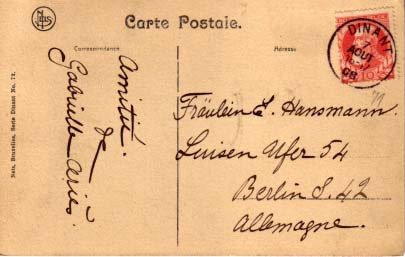 Carte Postale.
Correspondance
Adresse
Nels, Bruxelles, Serie Dinant No. 72.
Amitié
de
Gabrielle Ariès.
DINANT
7
AOUT
10
Fräulein E. Hansmann.
Luisen Ufer 54
Berlin S. 42
Allemagne.